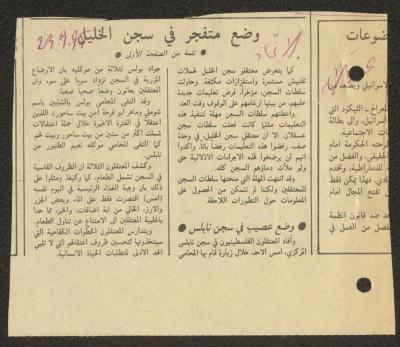 29.9.90
الاتحاد
وضع متفجر في سجن الخليل
تتمة من الصفحة الأولى
كما يتعرض معتقلو سجن الخليل لحملات
تفتيش مستمرة واستفزازات مكثفة. وحاولت
سلطات السجن، مؤخراً، فرض تعليمات جديدة
عليهم، من بينها ارغامهم على الوقوف وقت العد.
واعطتهم سلطات السجن مهلة لتنفيذ هذه
التعليمات مثلما كانت فعلت سلطات سجن
عسقلان. الا ان معتقلي سجن الخليل، في وحدة
صف، رفضوا هذه التعليمات رفضاً باتاً. واكدوا
انهم لن يرضخوا لهذه الاجراءات الاذلالية حتى
ولو ملأت دماؤهم السجن كله.
وقد انتهت المهلة التي منحتها سلطات السجن
للمعتقلين ولكننا لم نتمكن من الحصول على
المعلومات حول التطورات اللاحقة.
● وضع عصيب في سجن نابلس ●
وأفاد المعتقلون الفلسطينيون في سجن نابلس
المركزي، امس الاحد، خلال زيارة قام بها المحامي
جواد بولس لثلاثة من موكليه بان الاوضاع
المزرية في السجن تزداد سوءا على سوء وأن
المعتقلين يعانون وضعا صحيا صعبا.
وقد التقى المحامي بولس بالشابين باسم
شوملي وماهر ابو فرحة (من بيت ساحور)، اللذين
اعتقلا في الفترة الاخيرة خلال حملة اعتقالات
شملت اكثر من ستين من بيت ساحور وبيت لحم.
كما التقى المحامي موكله نعيم الطنبور من
نابلس.
وكشف المعتقلون الثلاثة ان الظروف القاسية
في السجن تشمل الطعام، كما وكيفا. ومثلوا على
ذلك بان وجبة الغذاء الرئيسية في اليوم نفسه
(امس) اقتصرت فقط على الماء وبعض الجزر
والارز، الخالي من اية اضافات، والخبز، مما حدا
باغلبية المعتقلين الى الامتناع عن تناول الطعام.
ويتدارس المعتقلون الخطوات الكفاحية التي
سيتخذونها لتحسين ظروف اعتقالهم التي لا تلبي
الحد الادنى لمتطلبات الحياة الانسانية.